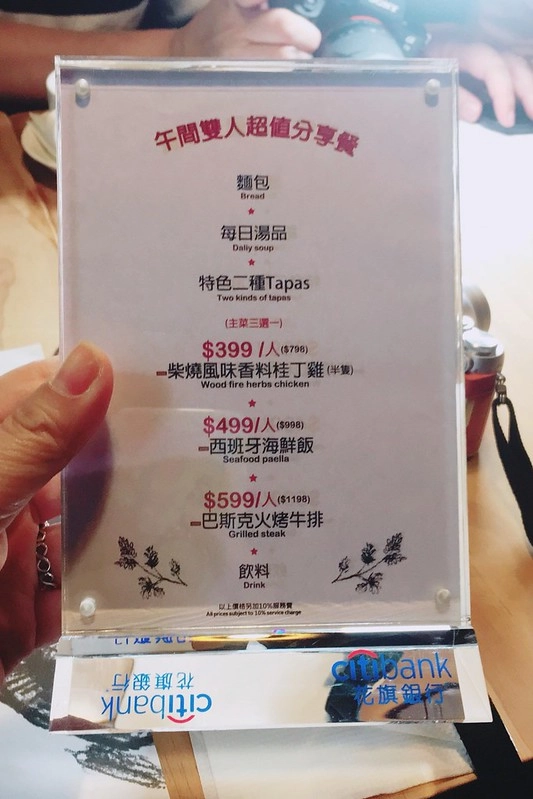 午間雙人超值分享餐
麵包
Bread
每日湯品
Daliy soup
特色二種Tapas
Two kinds of tapas
(主菜三選一)
$399 /人($798)
柴燒風味香料桂丁雞(半隻)
Wood fire herbs chicken
$499/人($998)
西班牙海鮮飯
Seafood paella
$599/人($1198)
巴斯克火烤牛排
Grilled steak
飲料
Drink
以上價格另加10%服務費
All prices subject to 10% service charge
citibank
花旗銀行
citibank
花旗銀行